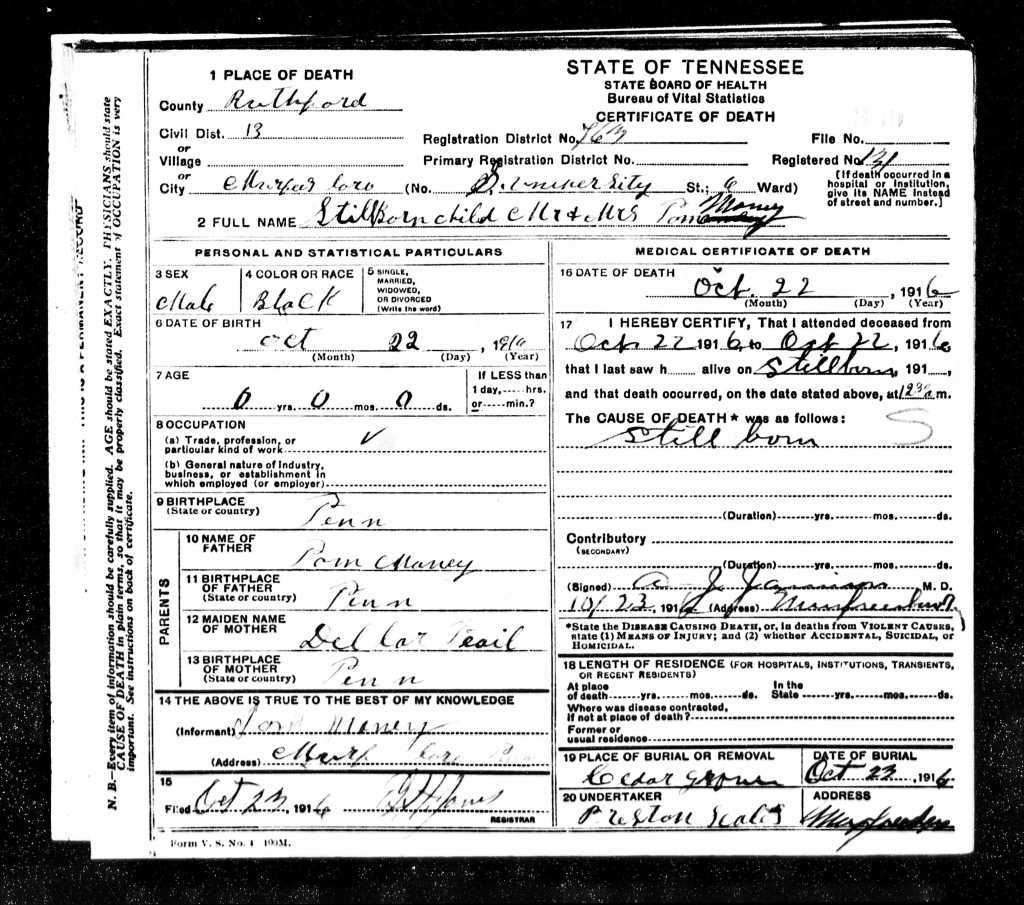 STATE OF TENNESSEE
STATE BOARD OF HEALTH
Bureau of Vital Statistics
CERTIFICATE OF DEATH
1 PLACE OF DEATH
County Ruthford
Civil Dist. 13
or
Village
or
City
Registration District No. 763
Primary Registration District No.
File No.
Registered No. 131
(No. St.; 6 Ward)
[If death occurred in a
hospital or institution,
give its NAME instead
of street and number.]
2 FULL NAME Stillborn child Mr & Mrs Pom Maney
PERSONAL AND STATISTICAL PARTICULARS
3 SEX Male
4 COLOR OR RACE Black
5 SINGLE,
MARRIED,
WIDOWED,
OR DIVORCED
(Write the word)
6 DATE OF BIRTH
Oct 22, 1916
(Month) (Day) (Year)
7 AGE
0 yrs. 0 mos. 0 ds.
If LESS than
1 day,.....hrs.
or.....min.?
8 OCCUPATION
(a) Trade, profession, or
particular kind of work
(b) General nature of industry,
business, or establishment in
which employed (or employer)
9 BIRTHPLACE
(State or country) Penn
PARENTS
10 NAME OF
FATHER Pom Maney
11 BIRTHPLACE
OF FATHER
(State or country) Penn
12 MAIDEN NAME
OF MOTHER
13 BIRTHPLACE
OF MOTHER
(State or country) Penn
14 THE ABOVE IS TRUE TO THE BEST OF MY KNOWLEDGE
(Informant) Maney
(Address)
15
Filed Oct 23, 1916 Jones
REGISTRAR
Form V. S. No. 4 100M.
MEDICAL CERTIFICATE OF DEATH
16 DATE OF DEATH
Oct. 22, 1916
(Month) (Day) (Year)
17 I HEREBY CERTIFY, That I attended deceased from
Oct 22 1916, to Oct 22, 1916
that I last saw h alive on Stillborn, 191
and that death occurred, on the date stated above, at m.
The CAUSE OF DEATH* was as follows:
Still born
(Duration) yrs. mos. ds.
Contributory
(SECONDARY)
(Duration) yrs. mos. ds.
(Signed) M. D.
10/23, 1916 (Address)
*State the DISEASE CAUSING DEATH, or, in deaths from VIOLENT CAUSES,
state (1) MEANS OF INJURY; and (2) whether ACCIDENTAL, SUICIDAL, or
HOMICIDAL.
18 LENGTH OF RESIDENCE (FOR HOSPITALS, INSTITUTIONS, TRANSIENTS,
OR RECENT RESIDENTS)
At place
of death yrs. mos. ds.
In the
State yrs. mos. ds.
Where was disease contracted,
if not at place of death?
Former or
usual residence
19 PLACE OF BURIAL OR REMOVAL
Cedar Grove
DATE OF BURIAL
Oct 23, 1916
20 UNDERTAKER
Preston Scales
ADDRESS
N. B.—Every item of information should be carefully supplied. AGE should be stated EXACTLY. PHYSICIANS should state
CAUSE OF DEATH in plain terms, so that it may be properly classified. Exact statement of OCCUPATION is very
important. See instructions on back of certificate.